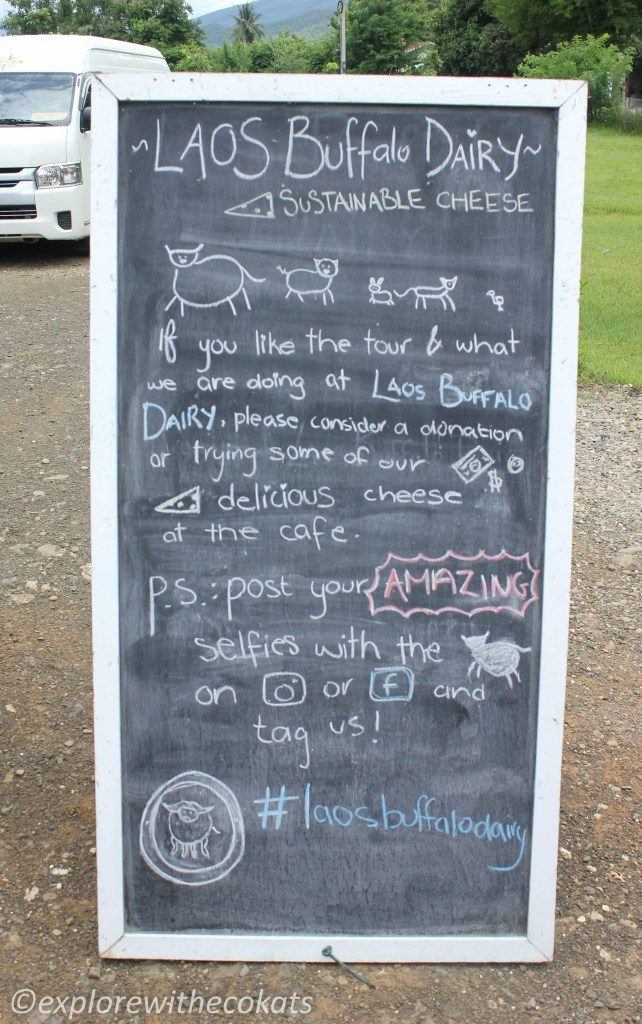 ~LAOS Buffalo DAiRY~
SUSTAINABLE CHEESE
If you like the tour & what
we are doing at LAOS BUFFALO
DAIRY, please consider a donation
or trying some of our
$
delicious cheese
at the cafe.
P.S.: post your AMAZING
selfies with the
on or f and
tag us!
#laosbuffalodairy
©explorewithecokats